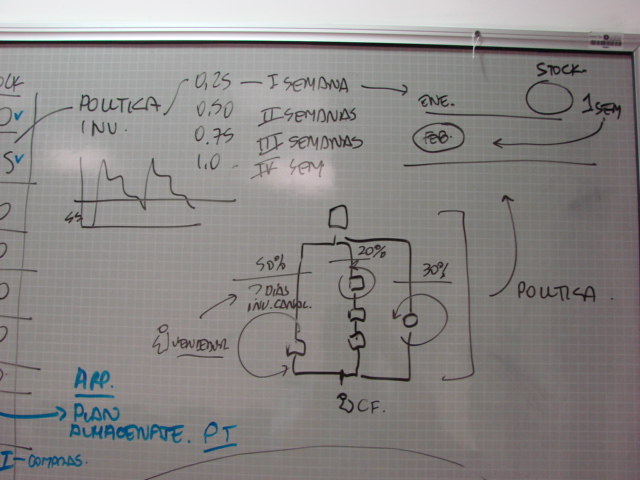 STOCK.
0,25 — I SEMANA
ENE.
1 SEM
POLITICA
INV.
0,50 II SEMANAS
0.75 III SEMANAS
FEB.
1.0 IV SEM
SS
50%
20%
30%
7 DIAS
INV. CANAL.
POLITICA.
VENDEDOR
CF.
ARP.
PLAN
ALMACENATE. PT